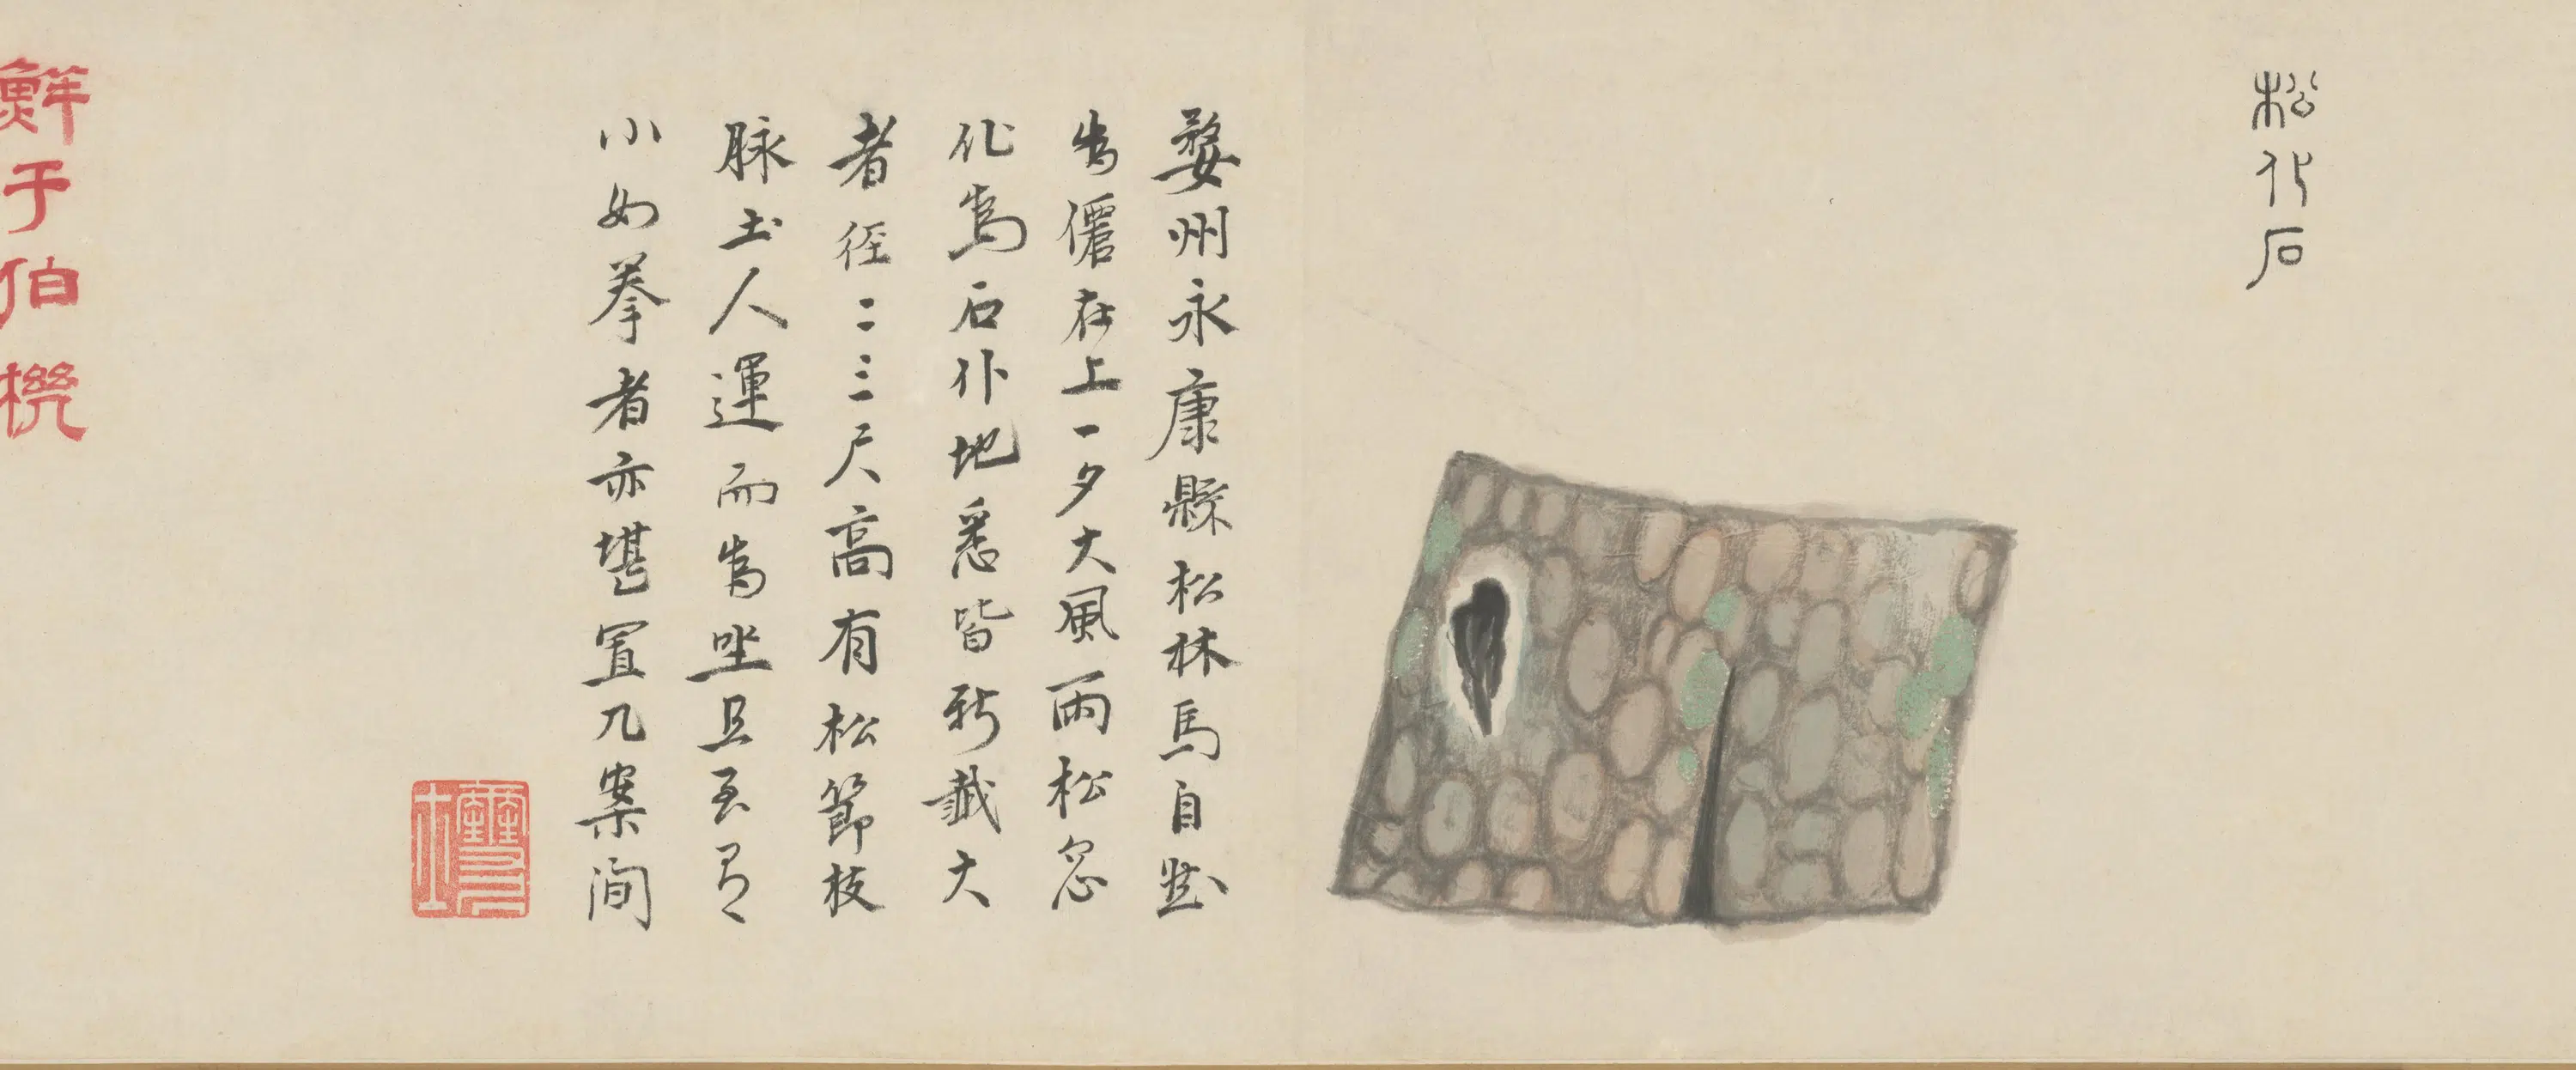 松化石
婺州永康縣松林馬自然
為僊在上一夕大風雨松忽
化為石仆地悉皆斷截大
者徑二三尺高有松節枝
脉土人運而為坐且至有
小如拳者亦堪置几案間
鮮于伯機